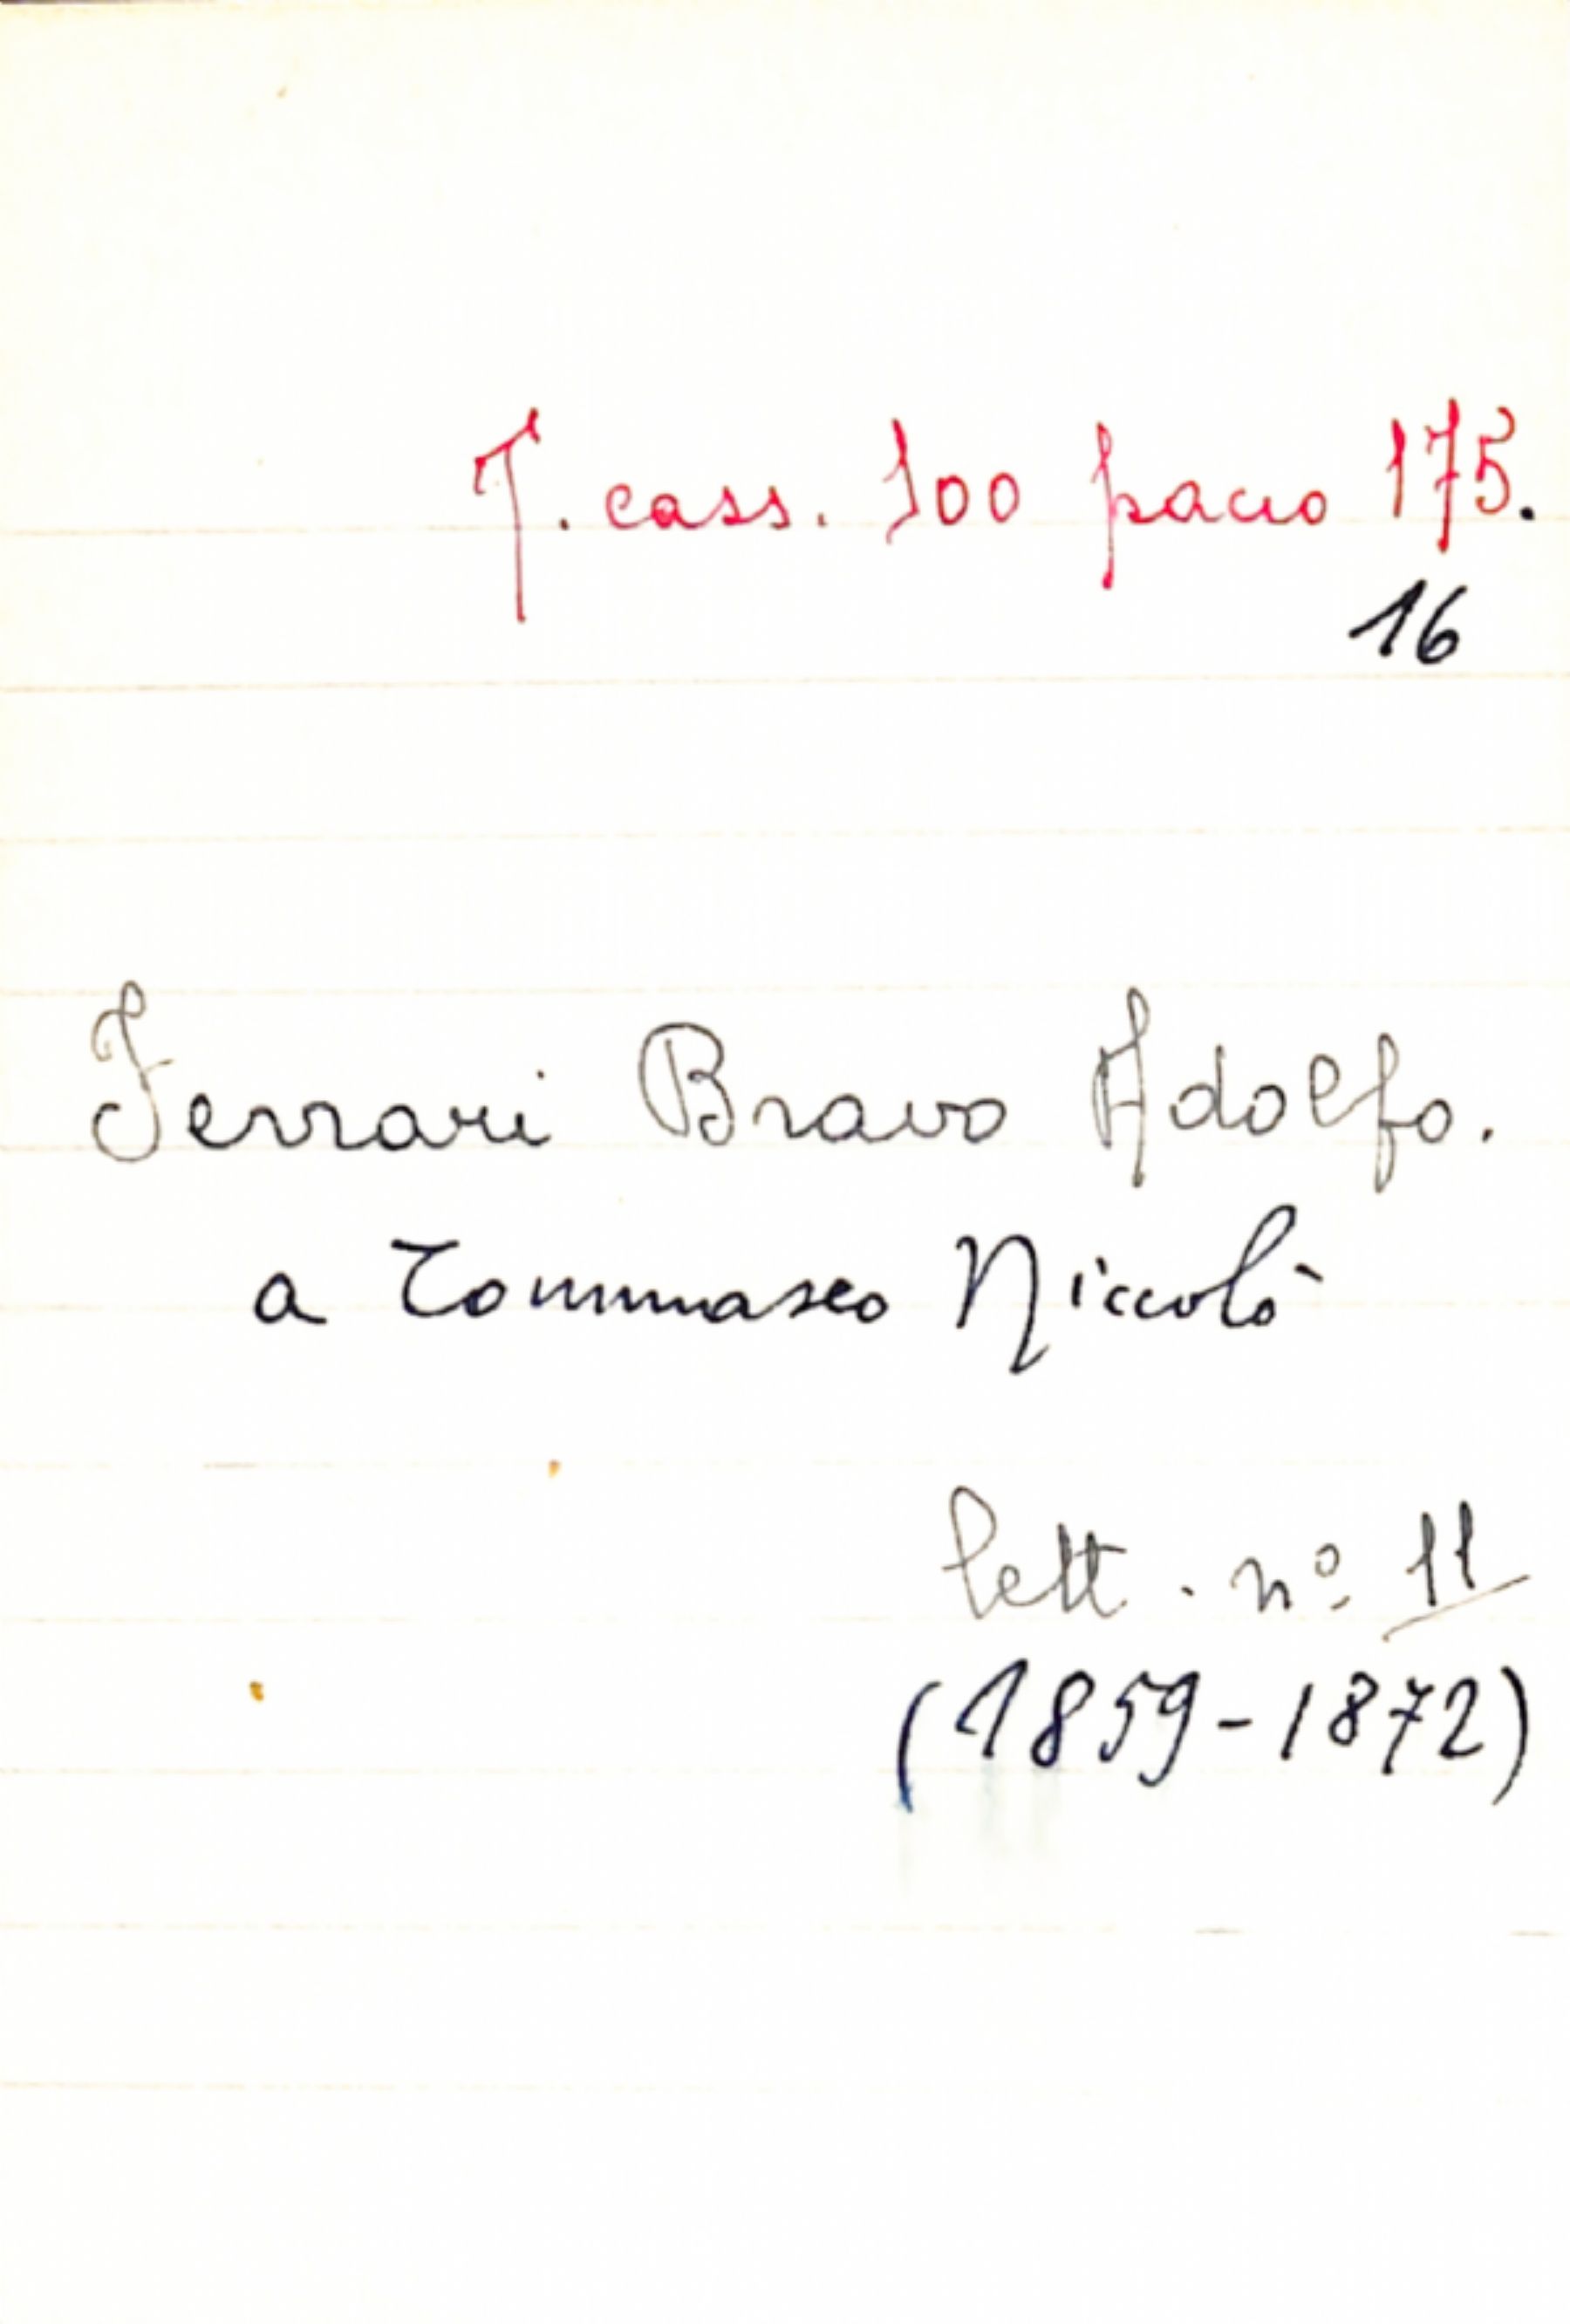 T. cass. 100 pacco 175.
16
Ferrari Bravo Adolfo.
a Tommaseo Niccolò
lett. nº 11
(1859-1872)